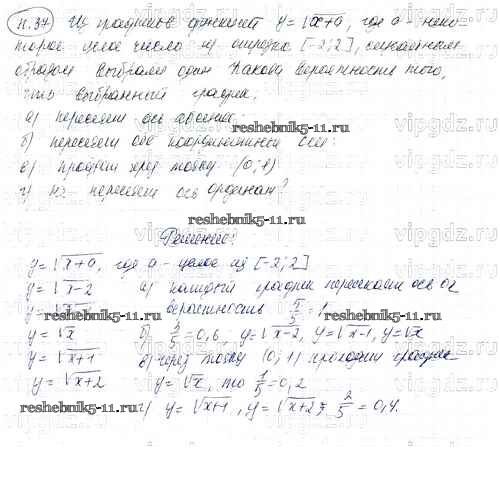 П.37 Из графиков функций y = √x+a, где a - неко
торое целое число из отрезка [-2; 2], случайным
образом выбрали один Какова вероятность того,
что выбранный график:
а) пересекает ось абсцисс:
reshebnik5-11.ru
б) пересекает обе координатные оси:
в) проходит через точку (0; 1)
г) не пересекает ось ординат?
reshebnik5-11.ru
Решение:
y = √x+a, где a - целое из [-2; 2]
y = √x-2 а) каждый график пересекает ось ox
вероятность 5/5 = 1
reshebnik5-11.ru
reshebnik5-11.ru
y = √x б) 3/5 = 0,6; y = √x-2, y = √x-1, y = √x
y = √x+1 в) через точку (0; 1) проходит график
y = √x+2 y = √x, то 1/5 = 0,2
г) y = √x+1, y = √x+2; 2/5 = 0,4.
reshebnik5-11.ru
vipgdz.ru
vipgdz.ru
vipgdz.ru
vipgdz.ru